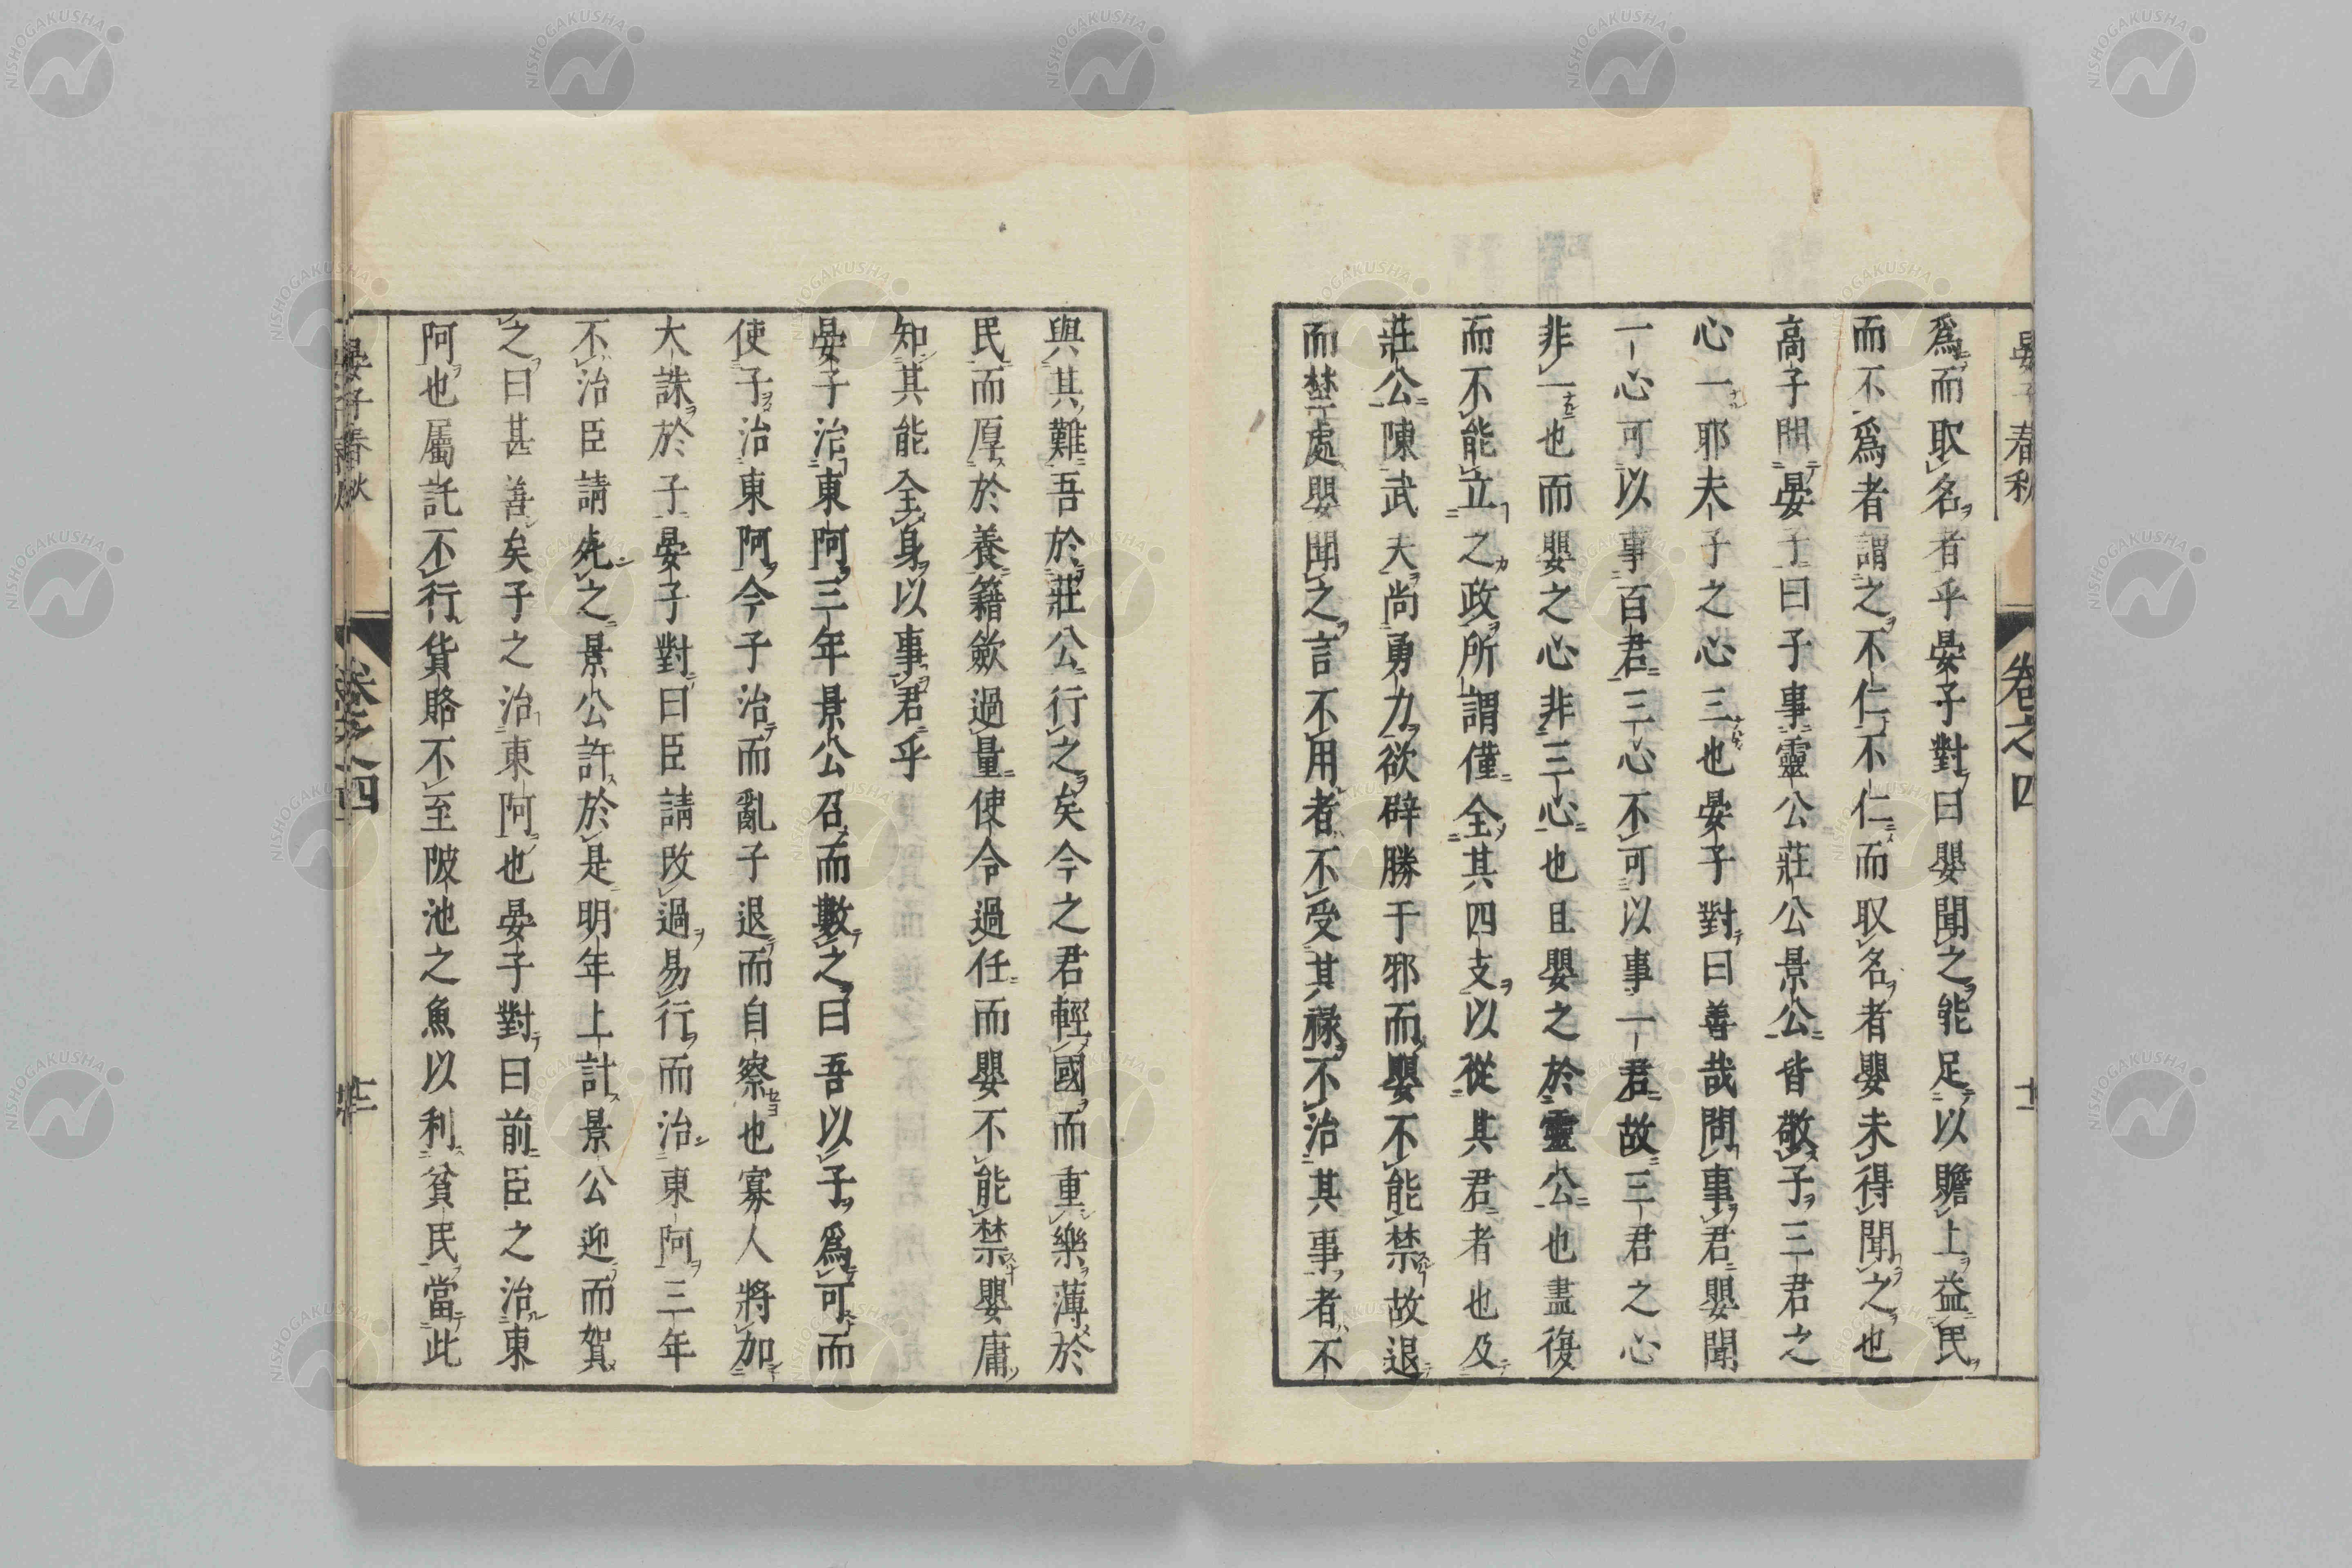 晏子春秋 卷之四
爲而取名者乎晏子對曰嬰聞之能足以贍上益民
而不爲者謂之不仁不仁而取名者嬰未得聞之也
高子問晏子曰子事靈公莊公景公皆敬子三君之
心一耶夫子之心三也晏子對曰善哉問事君嬰聞
一心可以事百君三心不可以事一君故三君之心
非一也而嬰之心非三心也且嬰之於靈公也盡復
而不能立之政所謂僅全其四支以從其君者也及
莊公陳武夫尚勇力欲辟勝于邪而嬰不能禁故退
而埜處嬰聞之言不用者不受其祿不治其事者不
與其難吾於莊公行之矣今之君輕國而重樂薄於
民而厚於養籍斂過量使令過任而嬰不能禁嬰庸
知其能全身以事君乎
晏子治東阿三年景公召而數之曰吾以子爲可而
使子治東阿今子治而亂子退而自察也寡人將加
大誅於子晏子對曰臣請改過易行而治東阿三年
不治臣請死之景公許於是明年上計景公迎而賀
之曰甚善矣子之治東阿也晏子對曰前臣之治東
阿也屬託不行貨賂不至陂池之魚以利貧民當此
晏子春秋 卷之四
NISHOGAKUSHA